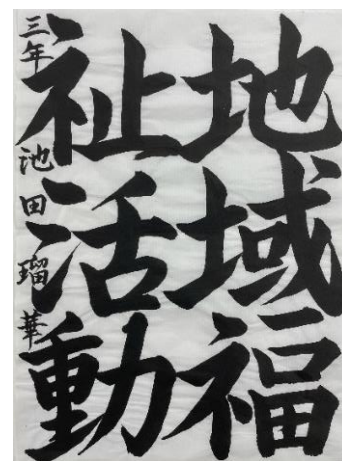 地域福
祉活動
三年 池田瑠華